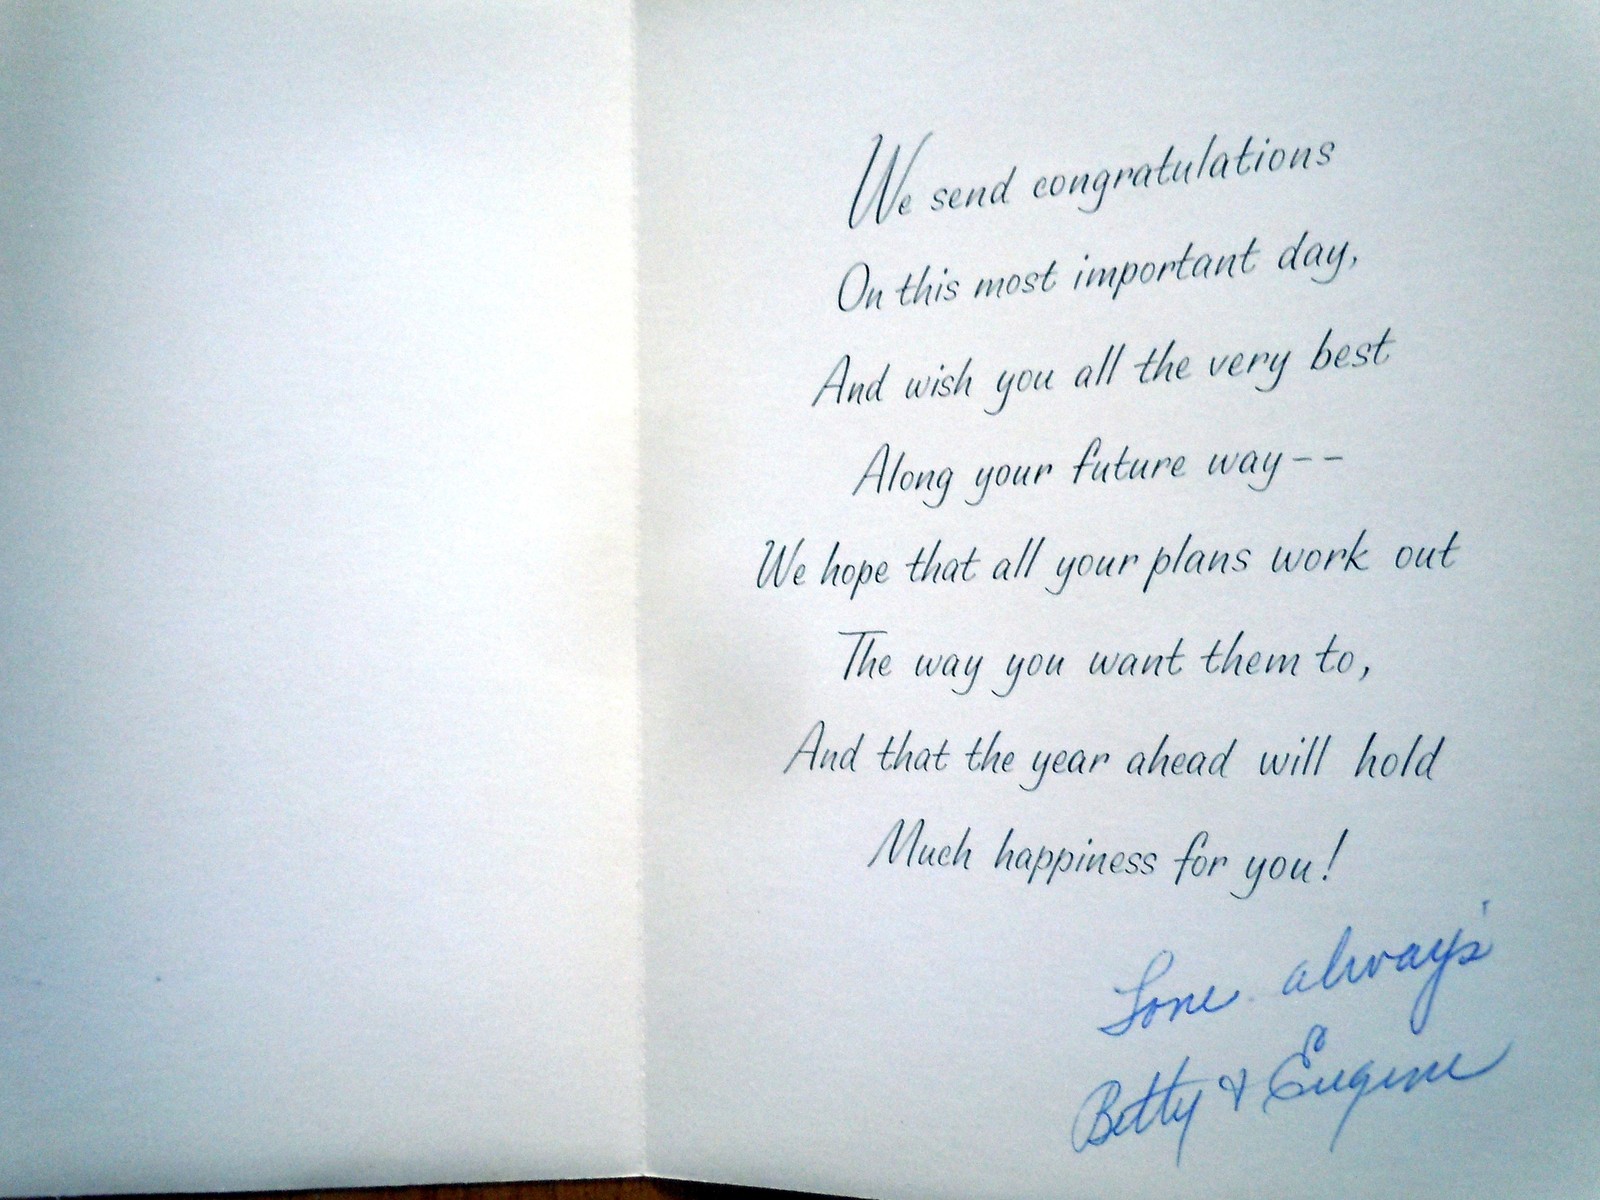 We send congratulations
On this most important day,
And wish you all the very best
Along your future way--
We hope that all your plans work out
The way you want them to,
And that the year ahead will hold
Much happiness for you!
Love always
Betty & Eugene